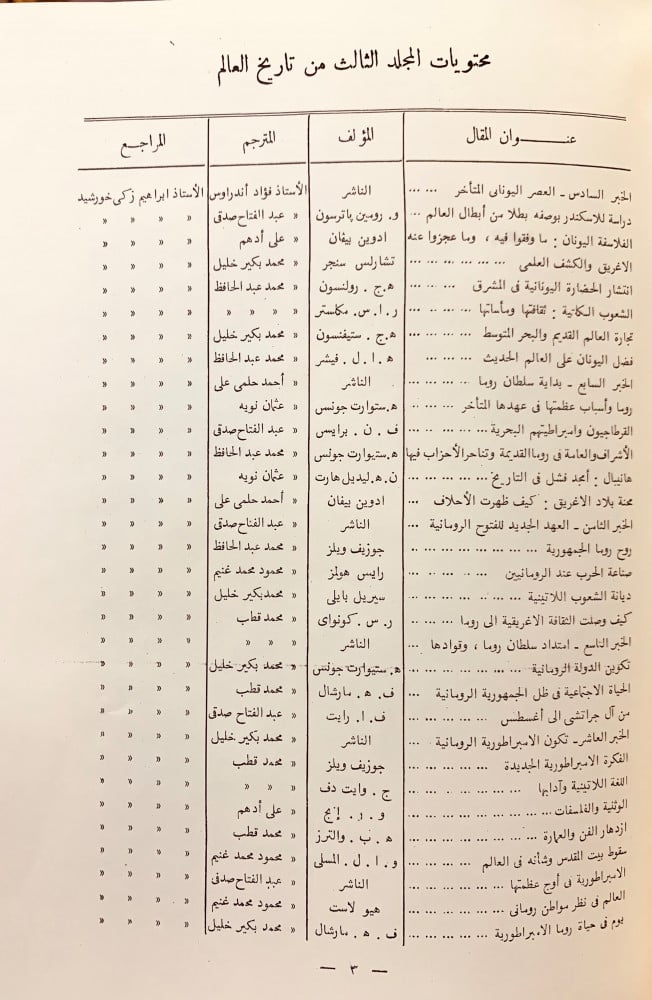 محتويات المجلد الثالث من تاريخ العالم
عنوان المقال المؤلف المترجم المراجع
الخبر السادس ـ العصر اليونانى المتأخر ... ... الناشر الأستاذ فؤاد أندراوس الأستاذ ابراهيم زكى خورشيد
دراسة للاسكندر بوصفه بطلا من أبطال العالم ... و. رومين پاترسون » عبد الفتاح صدقى » » » »
الفلاسفة اليونان : ما وفقوا فيه ، وما عجزوا عنه ادوين بيڤان » على أدهم » » » »
الاغريق والكشف العلمى ... ... ... ... ... ... تشارلس سنجر » محمد بكير خليل » » » »
انتشار الحضارة اليونانية فى المشرق ... ... ... ه. ج. رولنسون » محمد عبد الحافظ » » » »
الشعوب الكلتية : ثقافتها ومأساتها ... ... ... ر. ا. س. مكاستر » » » » » » » »
تجارة العالم القديم والبحر المتوسط ... ... ... ه. ج. ستيفنسون » محمد بكير خليل » » » »
فضل اليونان على العالم الحديث ... ... ... ه. ا. ل. فيشر » محمد عبد الحافظ » » » »
الخبر السابع ـ بداية سلطان روما ... ... ... الناشر » أحمد حلمى على » » » »
روما وأسباب عظمتها فى عهدها المتأخر ... ... ه. ستوارت جونس » عثمان نويه » » » »
القرطاجيون وامبراطيتهم البحرية ... ... ... ف. ن. برايس » عبد الفتاح صدقى » » » »
الأشراف والعامة فى روما القديمة وتناحر الأحزاب فيها ه. ستيوارت جونس » محمد عبد الحافظ » » » »
هانيبال : أمجد فشل فى التاريخ ... ... ... ... ن. ه. ليديل هارت » عثمان نويه » » » »
محنة بلاد الاغريق : كيف ظهرت الأحلاف ... ادوين بيفان » أحمد حلمى على » » » »
الخبر الثامن ـ العهد الجديد للفتوح الرومانية ... الناشر » عبد الفتاح صدقى » » » »
روح روما الجمهورية ... ... ... ... ... ... جوزيف ويلز » محمد عبد الحافظ » » » »
صناعة الحرب عند الرومانيين ... ... ... ... رايس هولمز » محمود محمد غنيم » » » »
ديانة الشعوب اللاتينية ... ... ... ... ... ... سيريل بايلى » محمد بكير خليل » » » »
كيف وصلت الثقافة الاغريقية الى روما ... ... ر. س. كونواى » محمد قطب » » » »
الخبر التاسع ـ امتداد سلطان روما ، وقوادها ... الناشر » » » » » » »
تكوين الدولة الرومانية ... ... ... ... ... ه. ستيوارت جونس » محمد بكير خليل » » » »
الحياة الاجتماعية فى ظل الجمهورية الرومانية ... ف. ه. مارشال » محمد قطب » » » »
من آل جراتشى الى أغسطس ... ... ... ... ف. ا. رايت » عبد الفتاح صدقى » » » »
الخبر العاشر ـ تكون الامبراطورية الرومانية ... الناشر » محمد بكير خليل » » » »
الفكرة الامبراطورية الجديدة ... ... ... ... جوزيف ويلز » محمد قطب » » » »
اللغة اللاتينية وآدابها ... ... ... ... ... ... ج. وايت دف » » » » » » »
الوثنية والفلسفات ... ... ... ... ... ... و. ر. إنج » على أدهم » » » »
ازدهار الفن والعمارة ... ... ... ... ... ... ه. ب. والترز » محمد قطب » » » »
سقوط بيت المقدس وشأنه فى العالم ... ... ... و. ا. ل. المسلى » محمود محمد غنيم » » » »
الامبراطورية فى أوج عظمتها ... ... ... ... الناشر » عبد الفتاح صدقى » » » »
العالم فى نظر مواطن رومانى ... ... ... ... هيو لاست » محمود محمد غنيم » » » »
يوم فى حياة روما الامبراطورية ... ... ... ... ف. ه. مارشال » محمد بكير خليل » » » »
— ٣ —